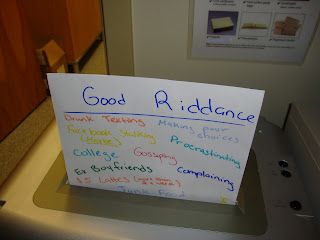 Good Riddance
Drunk Texting Making poor choices
Facebook Stalking Procrastinating
College Gossiping
Ex Boyfriends Complaining
$5 Lattes
Junk Food